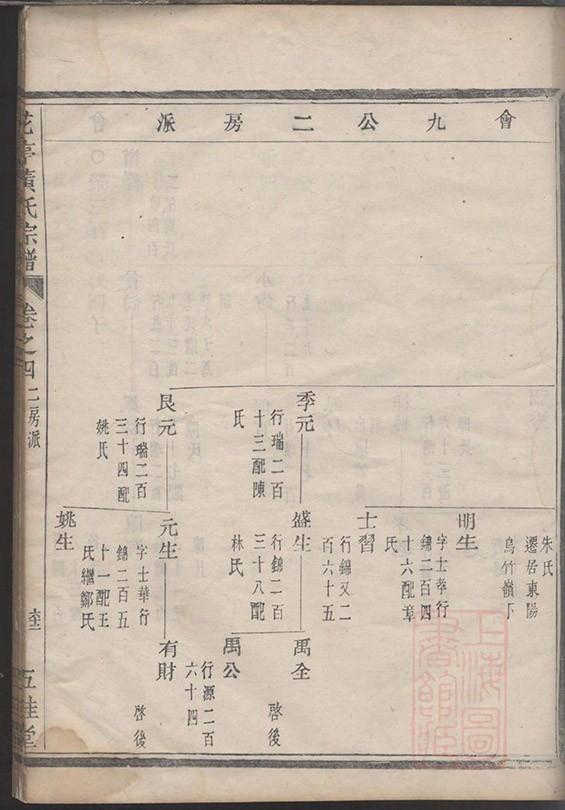 會九公二房派
朱氏
遷居東陽
烏竹嶺下
明生
字士孝行
錦二百四
十六配章
氏
士習
行錦又二
百六十五
季元
行瑞二百
十三配陳
氏
盛生
行錦二百
三十八配
林氏
萬全
啓後
萬公
行源二百
六十四
艮元
行瑞二百
三十四配
姚氏
元生
字士華行
錦二百五
十一配王
氏繼鄭氏
有財
啓後
姚生
花亭黃氏宗譜
卷之四
二房派
五桂堂
上海圖書館藏